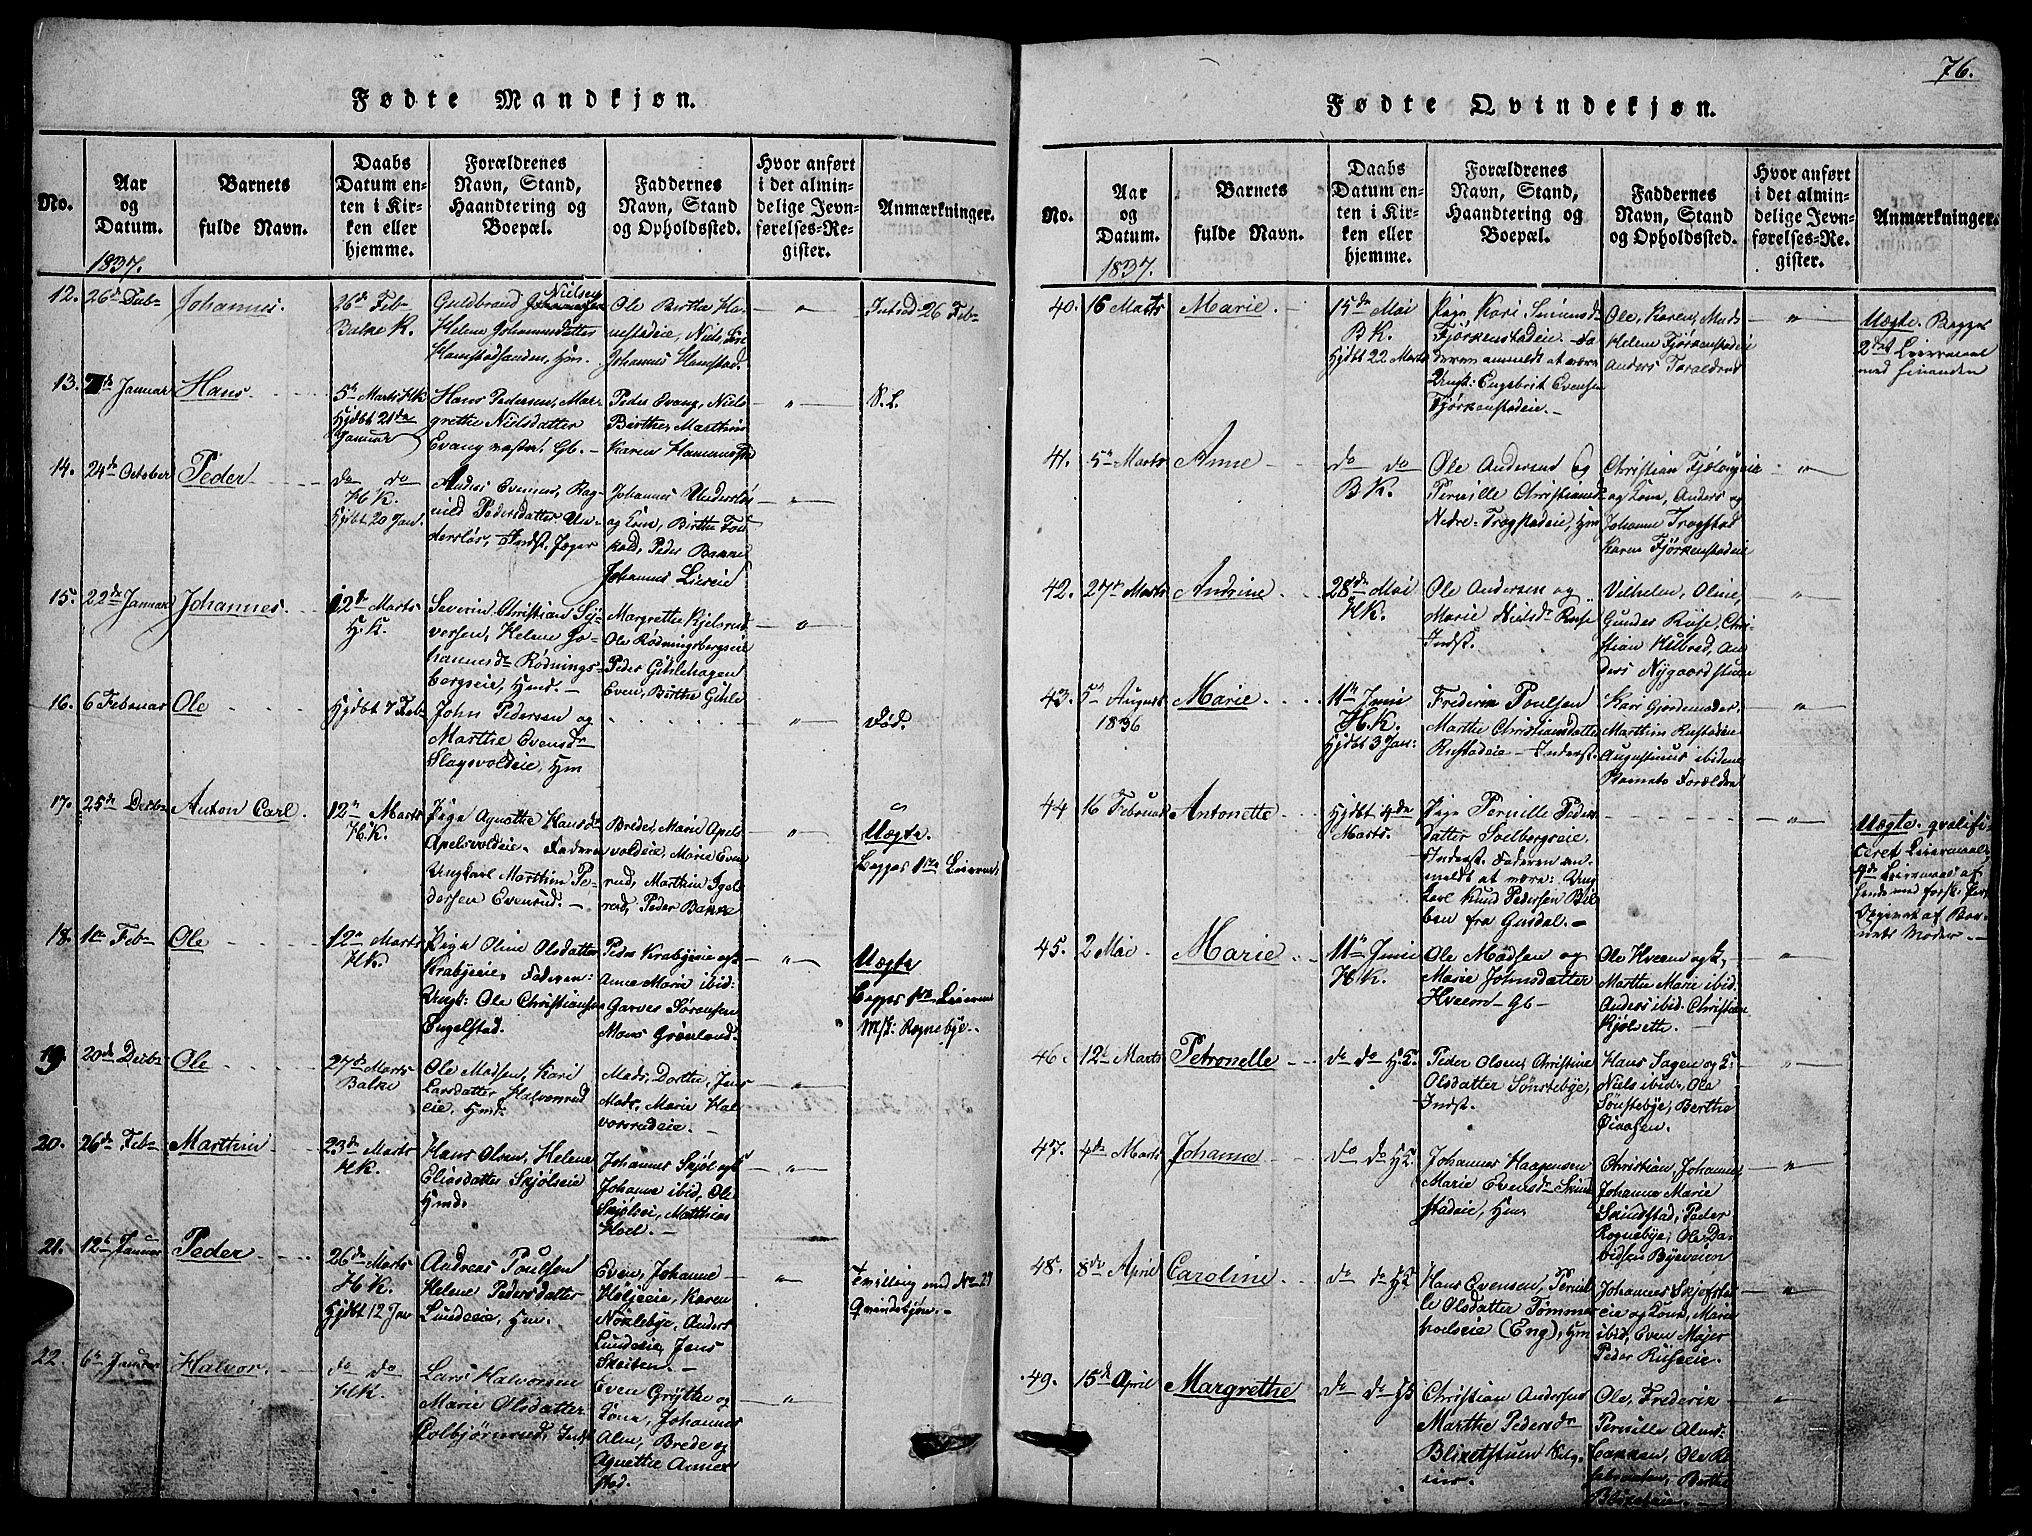 76.
Fødte Mandkjøn.
No.
Aar og Datum.
Barnets fulde Navn.
Daabs Datum enten i Kirken eller hjemme.
Forældrenes Navn, Stand, Haandtering og Boepæl.
Faddernes Navn, Stand og Opholdssted.
Hvor anført i det almindelige Jevnførelses-Register.
Anmærkninger.
1837.
12.
Johannes.
26d Feb
Balke K.
Guldbrand Nielsen
Helene Johannesdatter
Ole, Birthe
Johannes
Introd 26 Feb
13.
Januar
Hans
5n Marts HK
Hjdbt 21de
Januar
Hans Pedersen, Mar-
grethe Nielsdatter
Evang
Gb.
Peder Evang, Niels
Birthe, Marthin
Karen
14.
24de October
Peder
do do
HK.
Hjdbt 20 Jan.
Anders Evensen, Rag-
nild Pedersdatter
Indst. Jæger
Johannes
og Kone, Birthe
Peder
Johannes Lieseie
15.
22de Januar
Johannes
12d Marts
H.K.
Severin Christian Sy-
versen, Helene Jo-
hannesdr Rødnings-
bergseie, Hmd.
Margrethe Kjelsrud
Ole Rødningsbergseie
Peder Gihlehagen
Even, Birthe Gihle
16.
6 Februar
Ole
Hjdbt 7 Feb
John Pedersen og
Marthe Evensdr
Slagsvoldeie, Hm
Død.
17.
25de Decbr
Anton Carl
12n Marts
H.K.
Pige Agnethe Hansdr
Apelsvoldeie. Faderen
Ungkarl Marthin Pe-
dersen Evenrud.
Brede, Marie Apels-
voldeie, Marie Even-
rud, Marthin
Peder Bakke
Uægte.
Begges 1ste Leierm
18.
Feb
Ole
12n Marts
HK.
Pige Oline Olsdatter
Krabyeie, Faderen:
Ungk: Ole Christiansen
Engelstad.
Peder Krabyeie og
Anne Marie ibid:
Sørensen
Mons Grønland.
Uægte
Begges 1ste Leierm
Rognebye.
19.
20de Decbr
Ole
27de Marts
Balke
Ole Madsen, Kari
Larsdatter Halvorsrud-
eie, Hmd.
Mads, Dorthe, Jens
Mads, Marie Hal-
vorsrudeie.
20.
26de Feb
Marthin
23de Marts
HK.
Hans Olsen, Helene
Eliasdatter Skjølseie
Hmd.
Johannes Skjøl og K
Johanne ibid, Ole
Skjølseie, Matthias
Hoel.
21.
12te Januar
Peder
26de Marts
H.K.
Hjdbt 12 Jan
Andreas Poulsen
Helene Pedersdatter
Lundeeie, Hm.
Even, Johanne
Karen
Nøklebye, Anders
Lundeeie, Jens
Skeiten.
Tvilling med No 27
Qvindekjøn.
22.
6te Januar
Halvor
do do
HK.
Lars Halvorsen
Marie Olsdatter
Kolbjørnsrud, Indst
Even Grythe og
Kone, Johannes
Alm, Brede og
Agnethe
Fødte Qvindekjøn.
No.
Aar og Datum.
Barnets fulde Navn.
Daabs Datum enten i Kirken eller hjemme.
Forældrenes Navn, Stand, Haandtering og Boepæl.
Faddernes Navn, Stand og Opholdssted.
Hvor anført i det almindelige Jevnførelses-Register.
Anmærkninger.
1837.
40.
16 Marts
Marie
15de Mai
B K.
Hjdbt 22 Marts
Pige Kari Simensdr
Fjørkenstadeie. Fa-
deren anmeldt at være
Ungk: Engebrit Evensen
Fjørkenstadeie.
Ole, Karen, Mads
Helene Fjørkenstadeie
Anders Toraldrud
Uægte. Begges
2det Leiermaal
med hinanden
41.
5n Marts
Anne
do do
B K.
Ole Andersen og
Pernille Christiansdr
Nedre-Trogstadeie, Hm
Christian
og Kone, Anders og
Johanne Trogstad
Karen Fjørkenstadeie
42.
27de Marts
Andrine
28de Mai
HK.
Ole Andersen og
Marie Nielsdr Ruse
Indst.
Vilhelm, Oline,
Gunder Ruse, Chri-
stian Hilred, An-
ders Nygaardstuen
43.
5n August
1836
Marie
11n Juni
H.K.
Hjdbt 3 Jan:
Frederik Poulsen
Marthe Christiansdatter
Rustadeie - Inderst
Kari Gjordemoder
Marthin Rustadeie
Augustinus ibidem
Barnets Forældre
44
16 Februar
Antonette
Hjdbt 4de
Marts.
Pige Pernille Peders-
datter Soelbergseie
Inderst. Faderen an-
meldt at være: Ung-
karl Knud Pedersen
fra Gusdal.
Uægte. qvalifi-
ceret Leiermaal,
Leiermaal af
Opgivet af Bar-
nets Moder.
45.
2 Mai
Marie
11n Junii
H.K.
Ole Madsen og
Marie Johnsdatter
Hveem Gb
Ole Hveem og K,
Marthe Marie ibid.
Anders ibid. Christian
Kjølseth.
46.
12te Marts
Petronelle
do do HK
Peder Olsen, Christine
Olsdatter Sønstebye,
Indst.
Hans Sagen og K.
Niels ibid, Ole
Sønstebye, Berthe
47.
4de Marts
Johanne
do do HK
Johannes Haagensen
Marie Evensdr Skind-
stadeie, Hm
Christian, Johannes
Johanne Marie
Skindstad, Peder
Rognebye, Ole Da-
vidsen
48.
8de April
Caroline
do do HK
Hans Evensen, Pernil-
le Olsdatter Tømmer-
hoelseie (Eng), Hm
Johannes
eie og Kone, Marie
ibid, Even Majer
Peder Ruseeie.
49.
15de April
Margrethe
do do HK
Christian Andersen
Marthe Pedersdr
Blixetstuen
Ole, Frederik
Pernille Alm